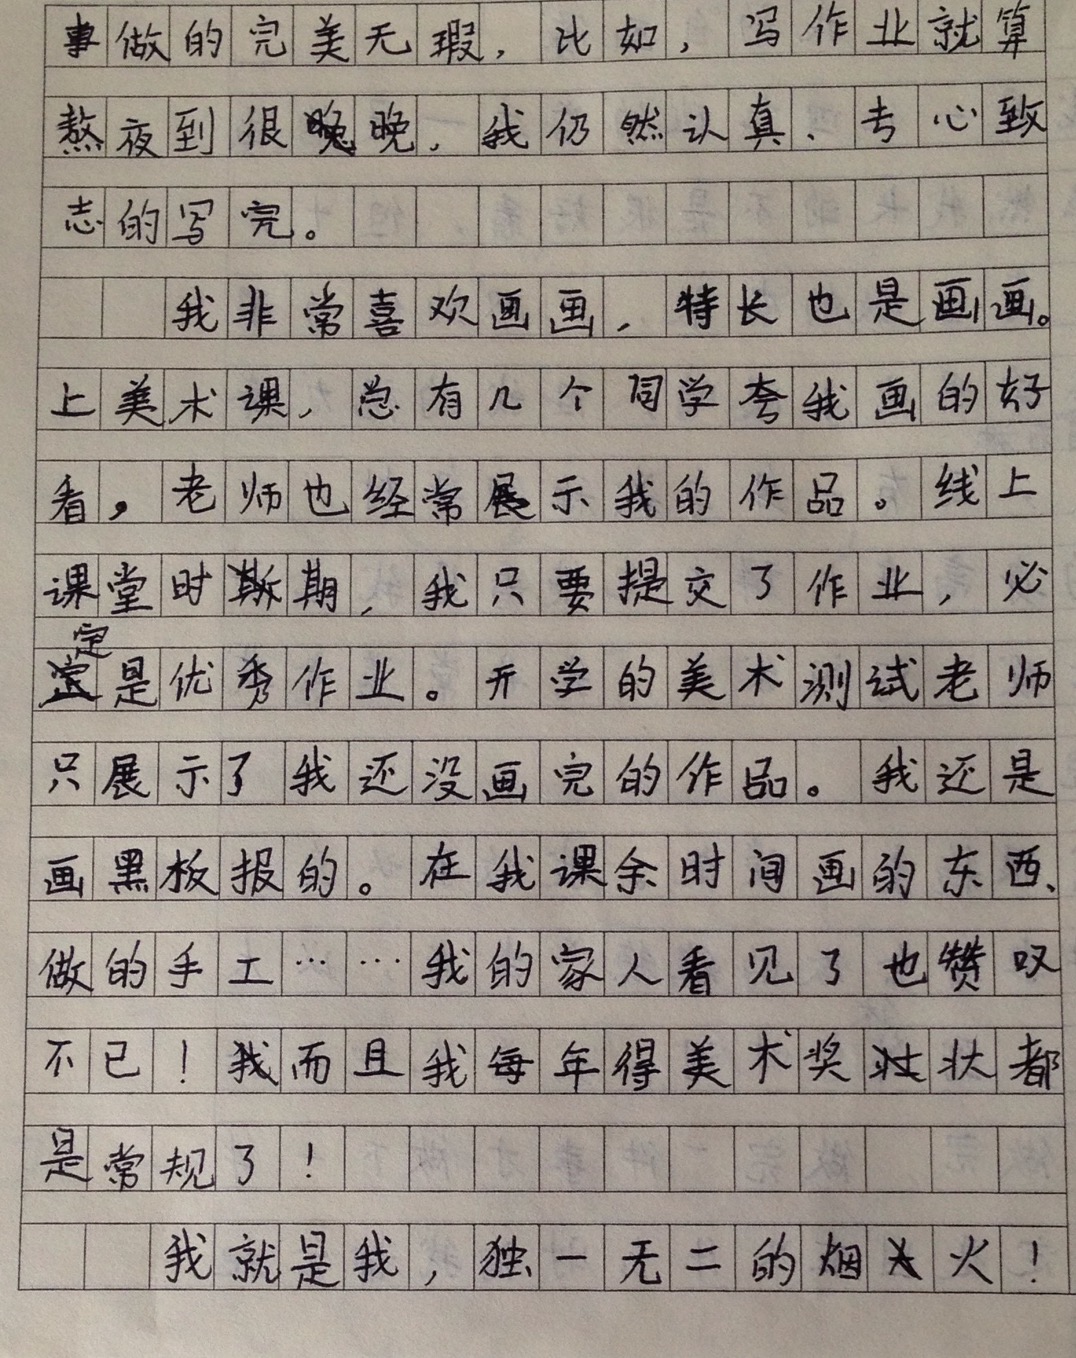 事做的完美无瑕，比如，写作业就算
熬夜到很晚，我仍然认真、专心致
志的写完。
我非常喜欢画画，特长也是画画。
上美术课，总有几个同学夸我画的好
看，老师也经常展示我的作品。线上
课堂时期，我只要提交了作业，必
定是优秀作业。开学的美术测试老师
只展示了我还没画完的作品。我还是
画黑板报的。在我课余时间画的东西、
做的手工……我的家人看见了也赞叹
不已！而且我每年得美术奖状都
是常规了！
我就是我，独一无二的烟火！